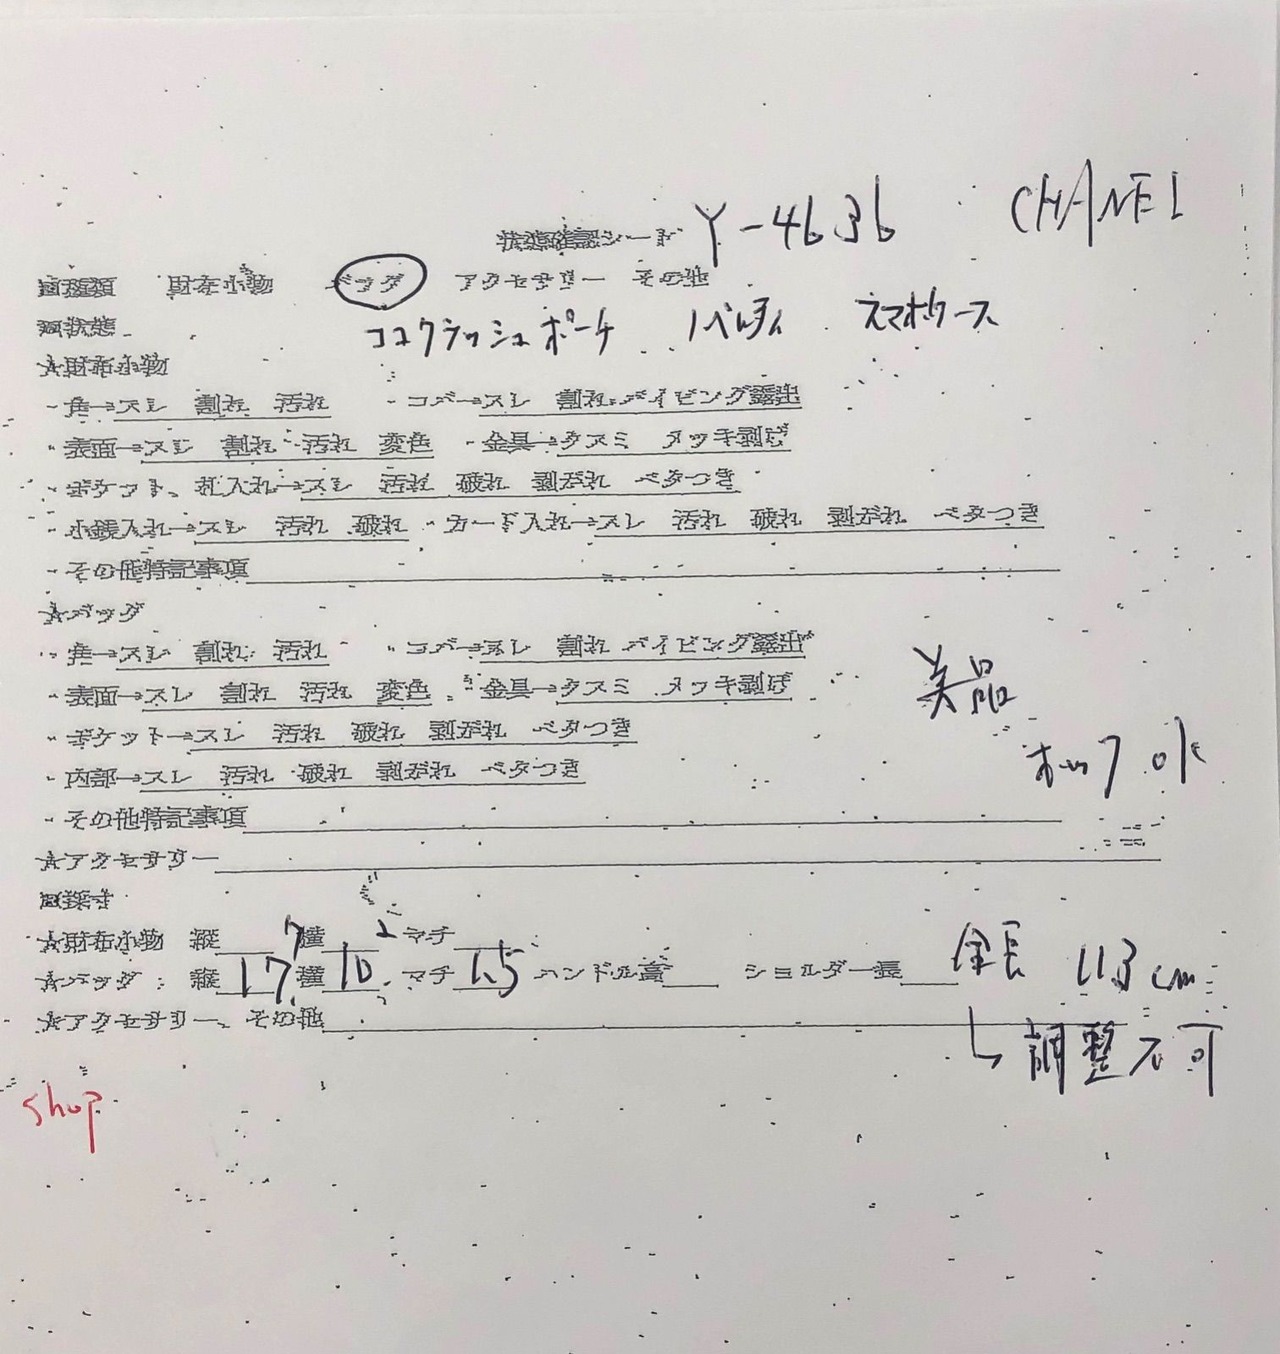 状態確認シート Y-4636 CHANEL
■種類 財布小物 バッグ アクセサリー その他
■状態 ココクラッシュポーチ ノベルティ スマホケース
★財布小物
・角→スレ 割れ 汚れ ・コバ→スレ 割れ パイピング露出
・表面→スレ 割れ 汚れ 変色 ・金具→クスミ メッキ剥げ
・ポケット、札入れ→スレ 汚れ 破れ 剥がれ ベタつき
・小銭入れ→スレ 汚れ 破れ ・カード入れ→スレ 汚れ 破れ 剥がれ ベタつき
・その他特記事項
★バッグ
・角→スレ 割れ 汚れ ・コバ→スレ 割れ パイピング露出
・表面→スレ 割れ 汚れ 変色 ・金具→クスミ メッキ剥げ 美品
・ポケット→スレ 汚れ 破れ 剥がれ ベタつき
ホック ok
・内部→スレ 汚れ 破れ 剥がれ ベタつき
・その他特記事項
★アクセサリー
■採寸
★財布小物 縦 7 横 2 マチ
★バッグ:縦 17 横 10 マチ 1.5 ハンドル高 ショルダー長 全長 113cm
★アクセサリー、その他
↳調整不可
shop